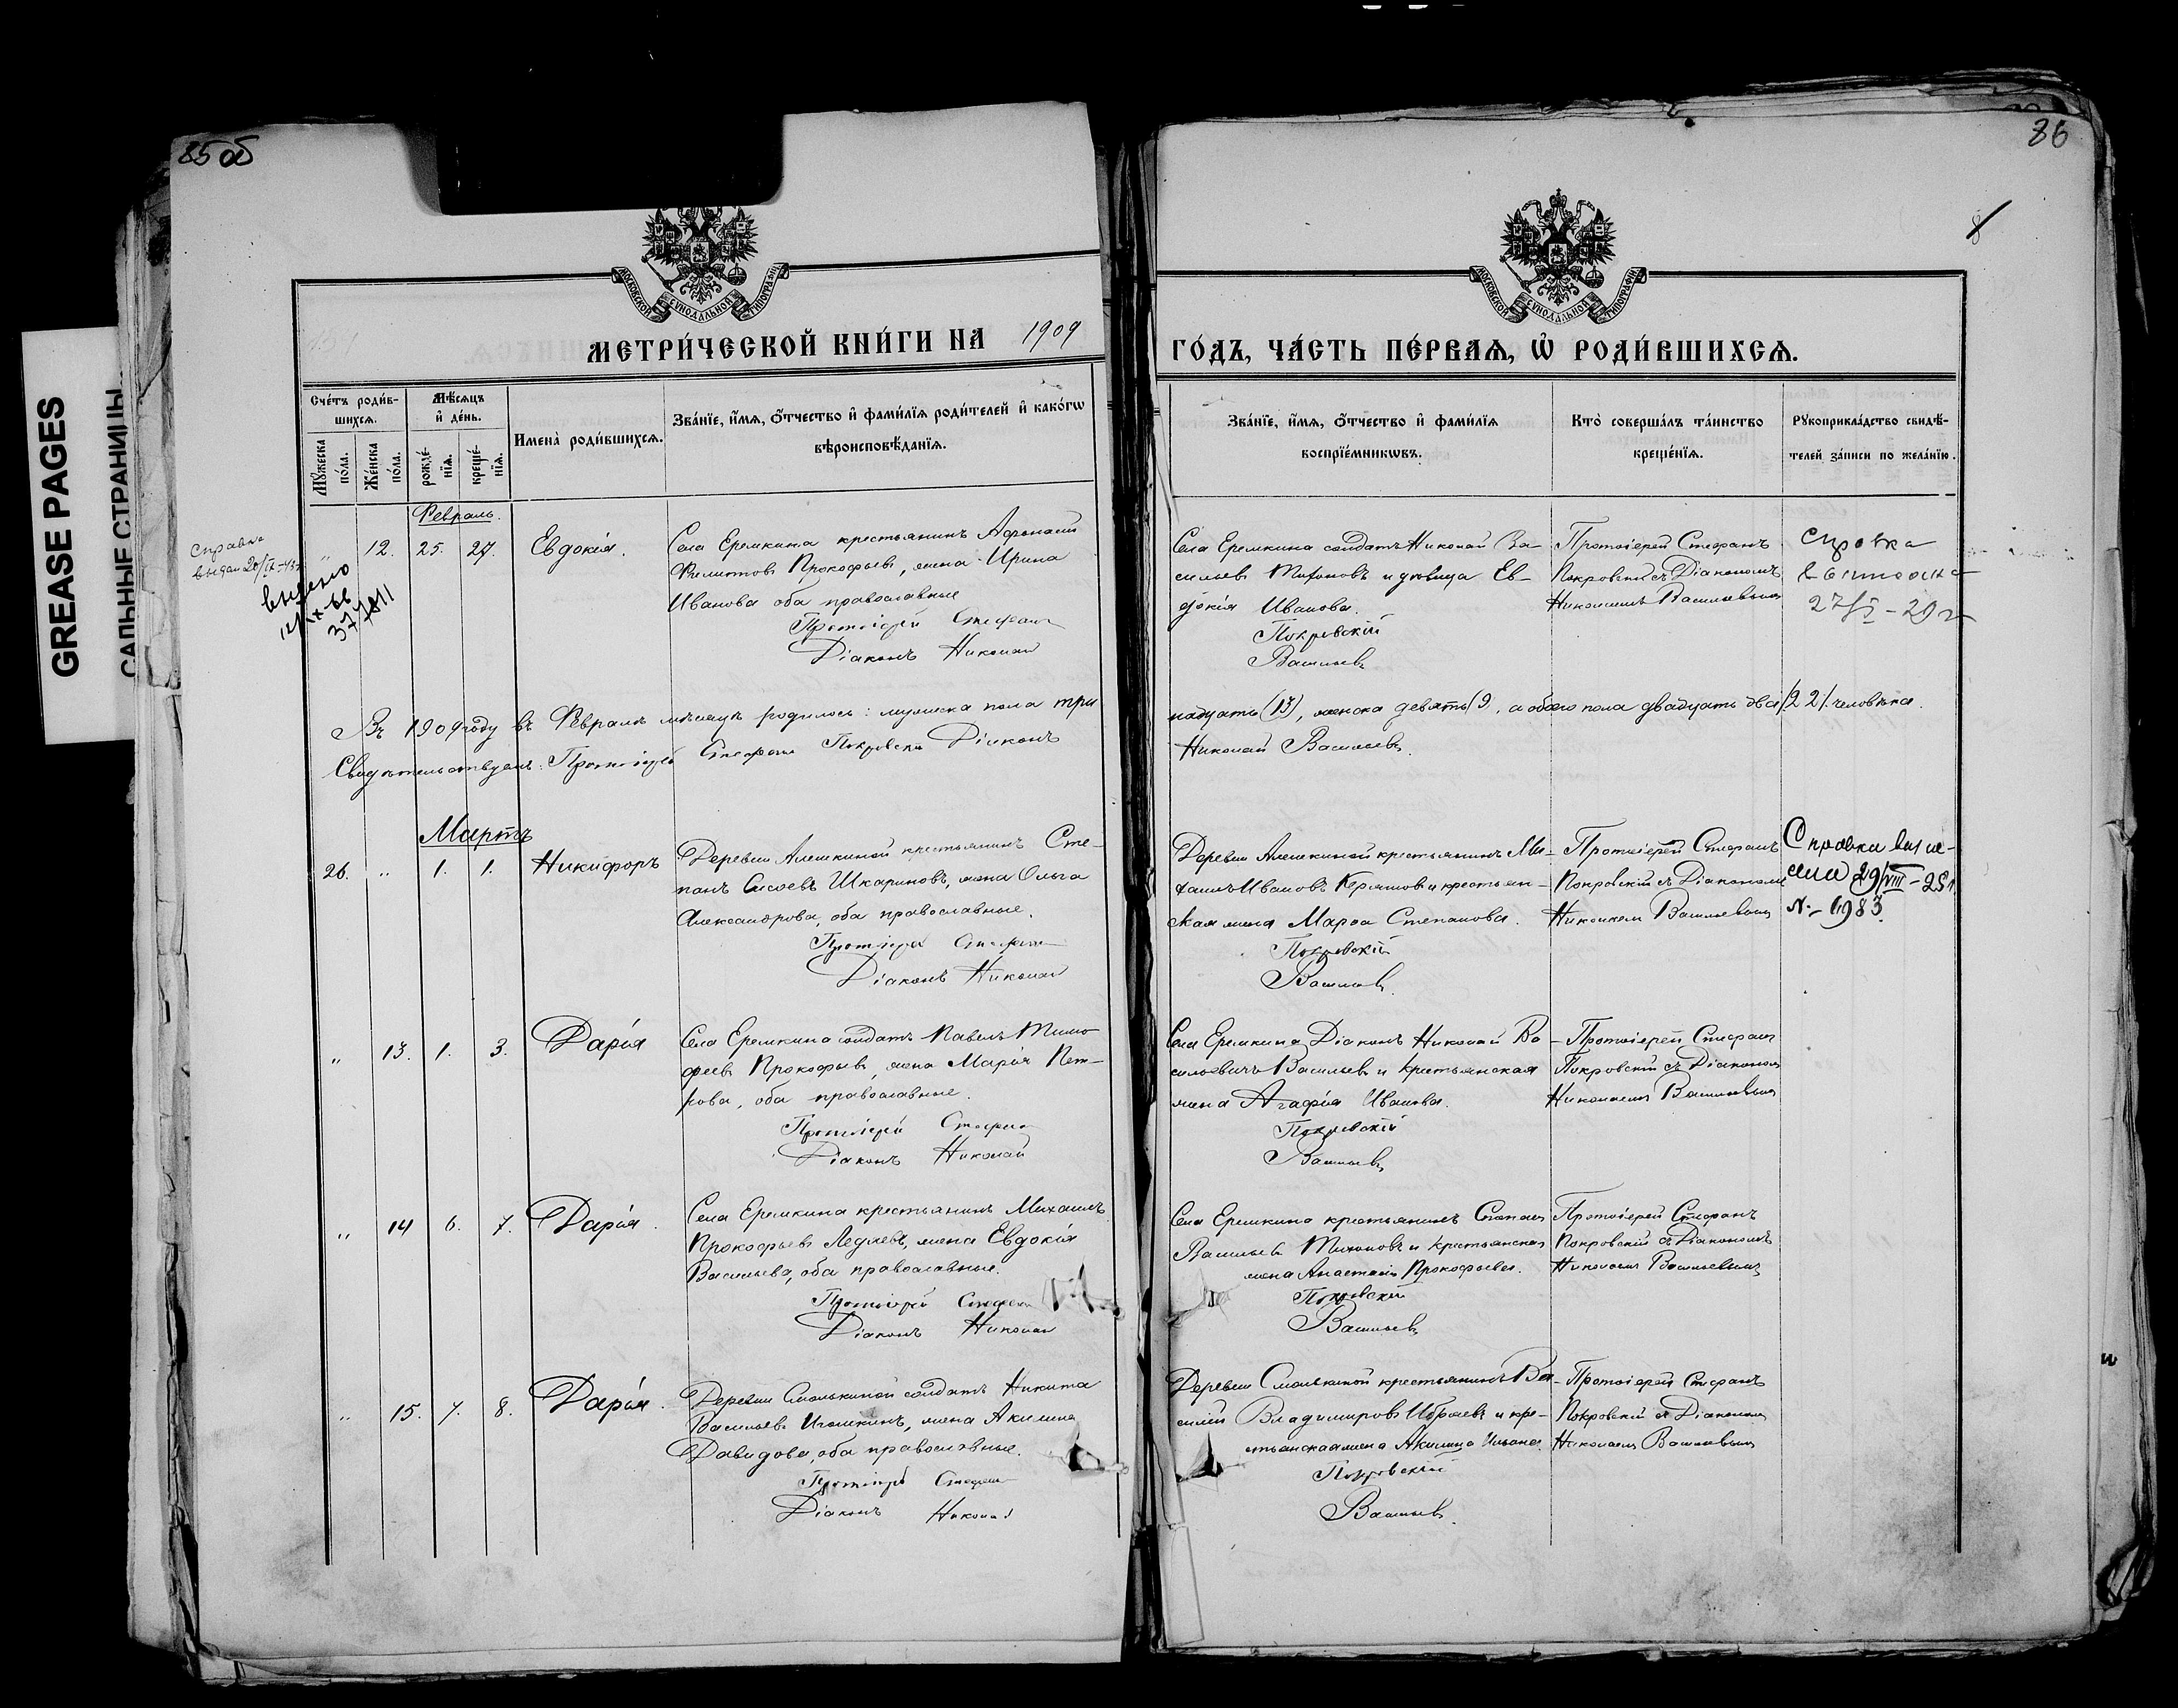 85 об
86
8
GREASE PAGES
САЛЬНЫЕ СТРАНИЦЫ
МОСКОВСКОЙ СѴНОДАЛЬНОЙ ТИПОГРАФІИ
МОСКОВСКОЙ СѴНОДАЛЬНОЙ ТИПОГРАФІИ
МЕТРИ́ЧЕСКОЙ КНИ́ГИ НА 1909
ГО́ДЪ, ЧА́СТЬ ПЕ́РВАѦ, Ѡ҆ РОДИ́ВШИХСѦ.
Сче́тъ роди́в-
шихсѧ.
Мꙋ́жеска
по́ла.
Же́нска
по́ла.
Мѣ́сѧцъ
и҆ де́нь.
рожде́-
нїѧ.
креще́-
нїѧ.
И҆мена̀ роди́вшихсѧ.
Зва́нїе, и҆́мѧ, ѻ҆́тчество и҆ фами́лїѧ роди́телей и҆ како́гѡ
вѣроисповѣ́данїѧ.
Зва́нїе, и҆́мѧ, ѻ҆́тчество и҆ фами́лїѧ
воспрїе́мникѡвъ.
Кто̀ соверша́лъ та́инство
креще́нїѧ.
Рꙋкоприкла́дство свидѣ́-
телей за́писи по жела́нїю.
Февраль.
справка
выдан 20/IX-43
выдано
12/IX-66
377811
" 12. 25. 27. Евдокія.
Села Еремкина крестьянинъ Афонасій
Филиповъ Прокофьевъ, жена Ирина
Иванова оба православные
Протоіерей Стефанъ
Діаконъ Николай
Села Еремкина солдатъ Николай Ва-
сильевъ Тихоновъ и девица Ев-
докія Иванова.
Покровскій
Васильевъ
Протоіерей Стефанъ
Покровскій съ Діакономъ
Николаемъ Васильевымъ
Справка
27/I-29 г
Въ 1909 году въ Февралѣ мѣсяцѣ родилось: мужеска пола три
надцать (13), женска девять (9, а обоего пола двадцать два (22). человѣка.
Свидѣтельствуемъ: Протоіерей Стефанъ Покровскій Діаконъ
Николай Васильевъ.
Мартъ
26. " 1. 1. Никифоръ
Деревни Алешкиной крестьянинъ Сте-
панъ Сысоевъ Шкариновъ, жена Ольга
Александрова, оба православные.
Протоіерей Стефанъ
Діаконъ Николай
Деревни Алешкиной крестьянинъ Ми-
хаилъ Ивановъ и крестьян-
ская жена Марѳа Степанова.
Покровскій
Васильевъ.
Протоіерей Стефанъ
Покровскій съ Діакономъ
Николаемъ Васильевымъ
Справки
29/VIII-25 г.
№ 983.
" 13. 1. 3. Дарія
Села Еремкина солдатъ Павелъ Тимо
феевъ Прокофьевъ, жена Марія Пет-
рова, оба православные.
Протоіерей Стефанъ
Діаконъ Николай
Села Еремкина Діаконъ Николай Ва-
сильевичъ Васильевъ и крестьянская
жена Агафія Иванова.
Покровскій
Васильевъ
Протоіерей Стефанъ
Покровскій съ Діакономъ
Николаемъ Васильевымъ
" 14 6. 7. Дарія.
Села Еремкина крестьянинъ Михаилъ
Прокофьевъ Ледяевъ, жена Евдокія
Васильева, оба православные.
Протоіерей Стефанъ
Діаконъ Николай
Села Еремкина крестьянинъ Степанъ
Васильевъ Тихоновъ и крестьянская
жена Анастасія Прокофьева.
Покровскій
Васильевъ
Протоіерей Стефанъ
Покровскій съ Діакономъ
Николаемъ Васильевымъ
" 15. 7. 8. Дарія.
Деревни Смолькиной солдатъ Никита
Васильевъ Игошкинъ, жена Акилина
Давидова, оба православные.
Протоіерей Стефанъ
Діаконъ Николай
Деревни Смолькиной крестьянинъ Ва-
силий Владимировъ Ибраевъ и кре-
стьянская жена Акилина
Покровскій
Васильевъ.
Протоіерей Стефанъ
Покровскій съ Діакономъ
Николаемъ Васильевымъ